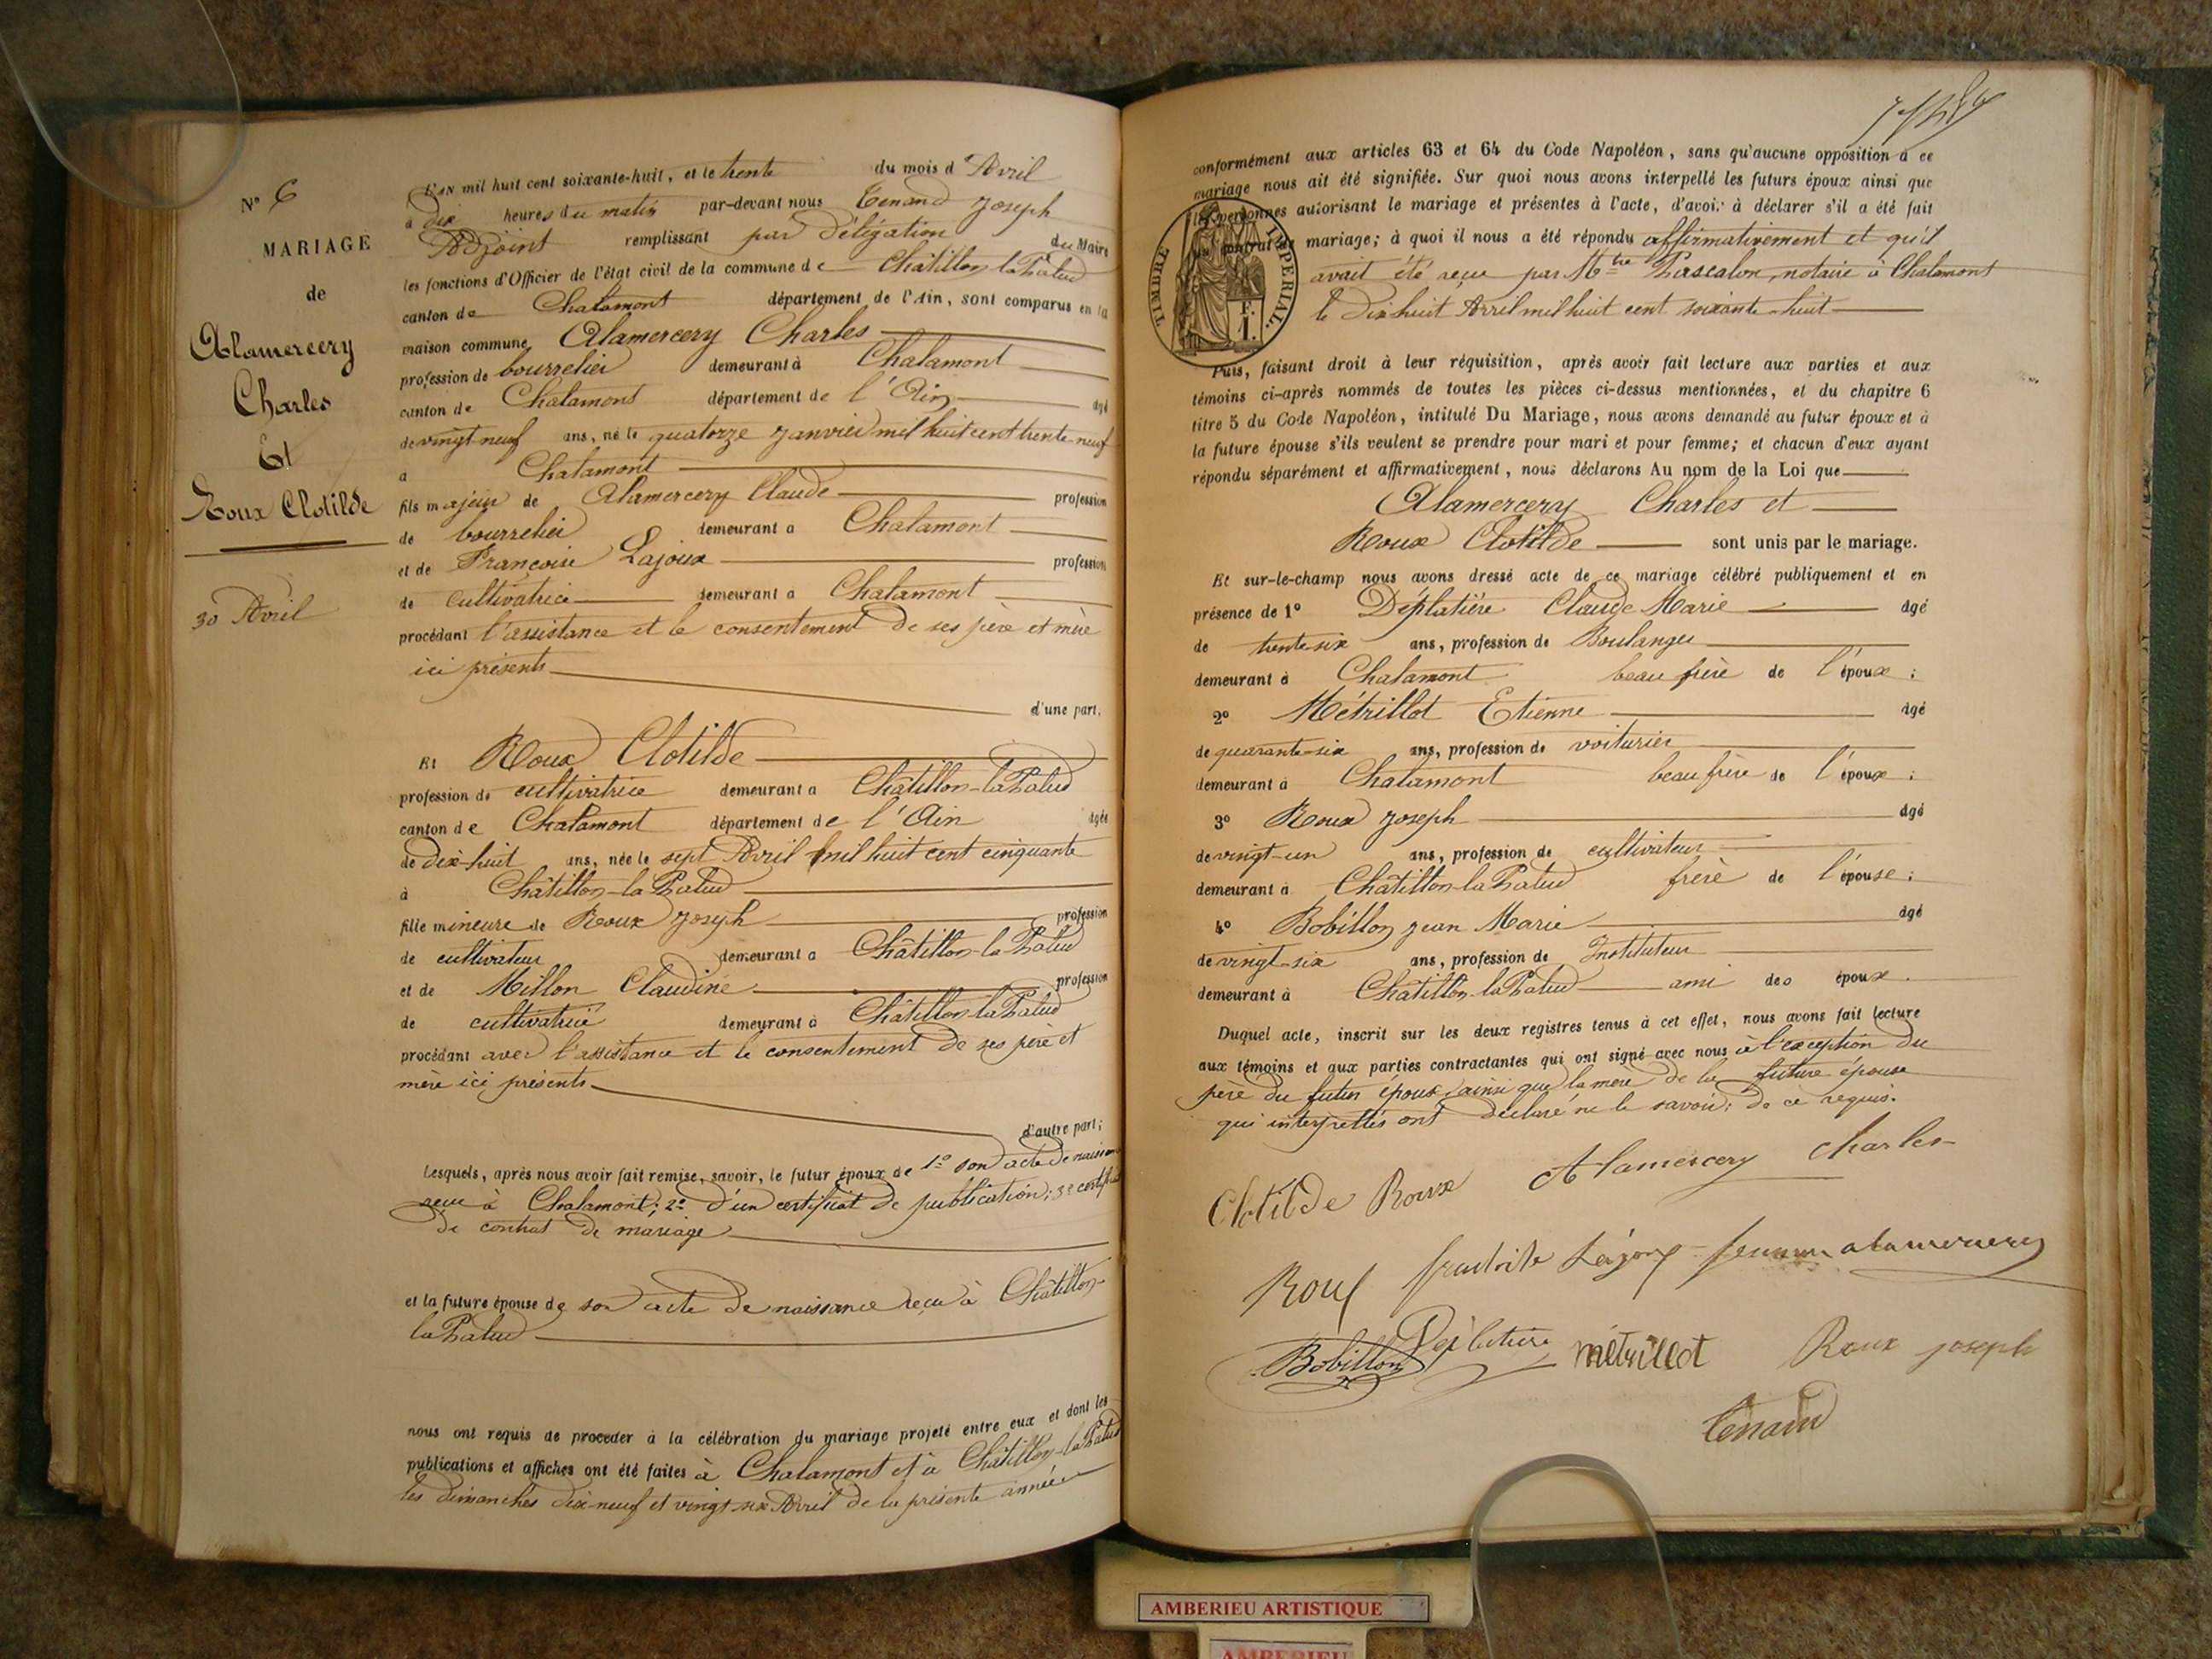 N° 6
MARIAGE
de
Alamercery
Charles
Et
Roux Clotilde
30 Avril
L'AN mil huit cent soixante-huit, et le trente du mois d Avril
à dix heures du matin par-devant nous Tenand Joseph
Adjoint remplissant par délégation du Maire
les fonctions d'Officier de l'état civil de la commune de Châtillon-la-Palud
canton de Chalamont département de l'Ain, sont comparus en la
maison commune Alamercery Charles
profession de bourrelier demeurant à Chalamont
canton de Chalamont département de l'Ain âgé
de vingt-neuf ans, né le quatorze Janvier mil huit cent trente-neuf
à Chalamont
fils majeur de Alamercery Claude profession
de bourrelier demeurant à Chalamont
et de Françoise Lajoux profession
de cultivatrice demeurant à Chalamont
procédant l'assistance et le consentement de ses père et mère
ici présents
d'une part,
Et Roux Clotilde
profession de cultivatrice demeurant à Châtillon-la-Palud
canton de Chalamont département de l'Ain âgée
de dix-huit ans, née le sept Avril mil huit cent cinquante
à Châtillon-la-Palud
fille mineure de Roux Joseph profession
de cultivateur demeurant à Châtillon-la-Palud
et de Millon Claudine profession
de cultivatrice demeurant à Châtillon-la-Palud
procédant avec l'assistance et le consentement de ses père et
mère ici présents
d'autre part;
Lesquels, après nous avoir fait remise, savoir, le futur époux de 1° son acte de naissance
reçu à Chalamont; 2° d'un certificat de publication; 3° certificat
de contrat de mariage
et la future épouse de son acte de naissance reçu à Châtillon-
la Palud
nous ont requis de procéder à la célébration du mariage projeté entre eux et dont les
publications et affiches ont été faites à Chalamont et à Châtillon-la-Palud
les dimanches dix-neuf et vingt-six Avril de la présente année
conformément aux articles 63 et 64 du Code Napoléon, sans qu'aucune opposition à ce
mariage nous ait été signifiée. Sur quoi nous avons interpellé les futurs époux ainsi que
les personnes autorisant le mariage et présentes à l'acte, d'avoir à déclarer s'il a été fait
un contrat de mariage; à quoi il nous a été répondu affirmativement et qu'il
avait été reçu par Mtre Pascalon, notaire à Chalamont
le dix huit Avril mil huit cent soixante-huit
TIMBRE IMPERIAL.
F.
1.
Puis, faisant droit à leur réquisition, après avoir fait lecture aux parties et aux
témoins ci-après nommés de toutes les pièces ci-dessus mentionnées, et du chapitre 6
titre 5 du Code Napoléon, intitulé Du Mariage, nous avons demandé au futur époux et à
la future épouse s'ils veulent se prendre pour mari et pour femme; et chacun d'eux ayant
répondu séparément et affirmativement, nous déclarons Au nom de la Loi que
Alamercery Charles et
Roux Clotilde sont unis par le mariage.
Et sur-le-champ nous avons dressé acte de ce mariage célébré publiquement et en
présence de 1° Déplatière Claude Marie âgé
de trente-six ans, profession de Boulanger
demeurant à Chalamont beau frère de l'époux;
2° Métrillot Etienne âgé
de quarante-six ans, profession de voiturier
demeurant à Chalamont beau frère de l'époux;
3° Roux Joseph âgé
de vingt-un ans, profession de cultivateur
demeurant à Châtillon-la-Palud frère de l'épouse;
4° Bobillon Jean Marie âgé
de vingt-six ans, profession de Instituteur
demeurant à Châtillon-la-Palud ami des époux.
Duquel acte, inscrit sur les deux registres tenus à cet effet, nous avons fait lecture
aux témoins et aux parties contractantes qui ont signé avec nous à l'exception du
père du futur époux, ainsi que la mère de la future épouse
qui interpellés ont déclaré ne le savoir; de ce requis.
Clotilde Roux Alamercery Charles
Roux Lajoux femme alamercery
Bobillon Deplatière métrillot Roux joseph
Tenand
AMBERIEU ARTISTIQUE
AMBERIEU